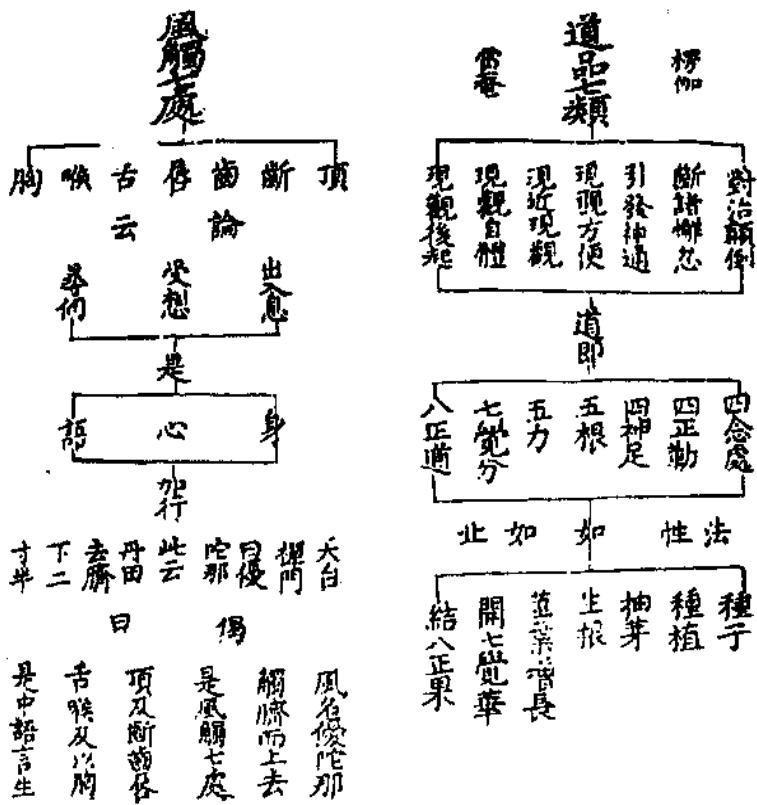 道品七類
楞伽
儒菴
對治顛倒
斷諸懈怠
引發神通
現觀方便
現近現觀
現觀自體
現觀後起
道即
四念處
四正勤
四神足
五根
五力
七覺分
八正道
法性如如此
種子
種植
抽芽
生根
莖葉增長
開七覺華
結八正果
風觸七處
頂
斷
齒
唇
舌
喉
胸
論云
出入息
受想
尋伺
是
身
心
語
加行
天台
禪門
曰優
陀那
此云
丹田
去臍
下二
寸半
偈曰
風名優陀那
觸臍而上去
是風觸七處
頂及斷齒唇
舌喉及以胸
是中語言生